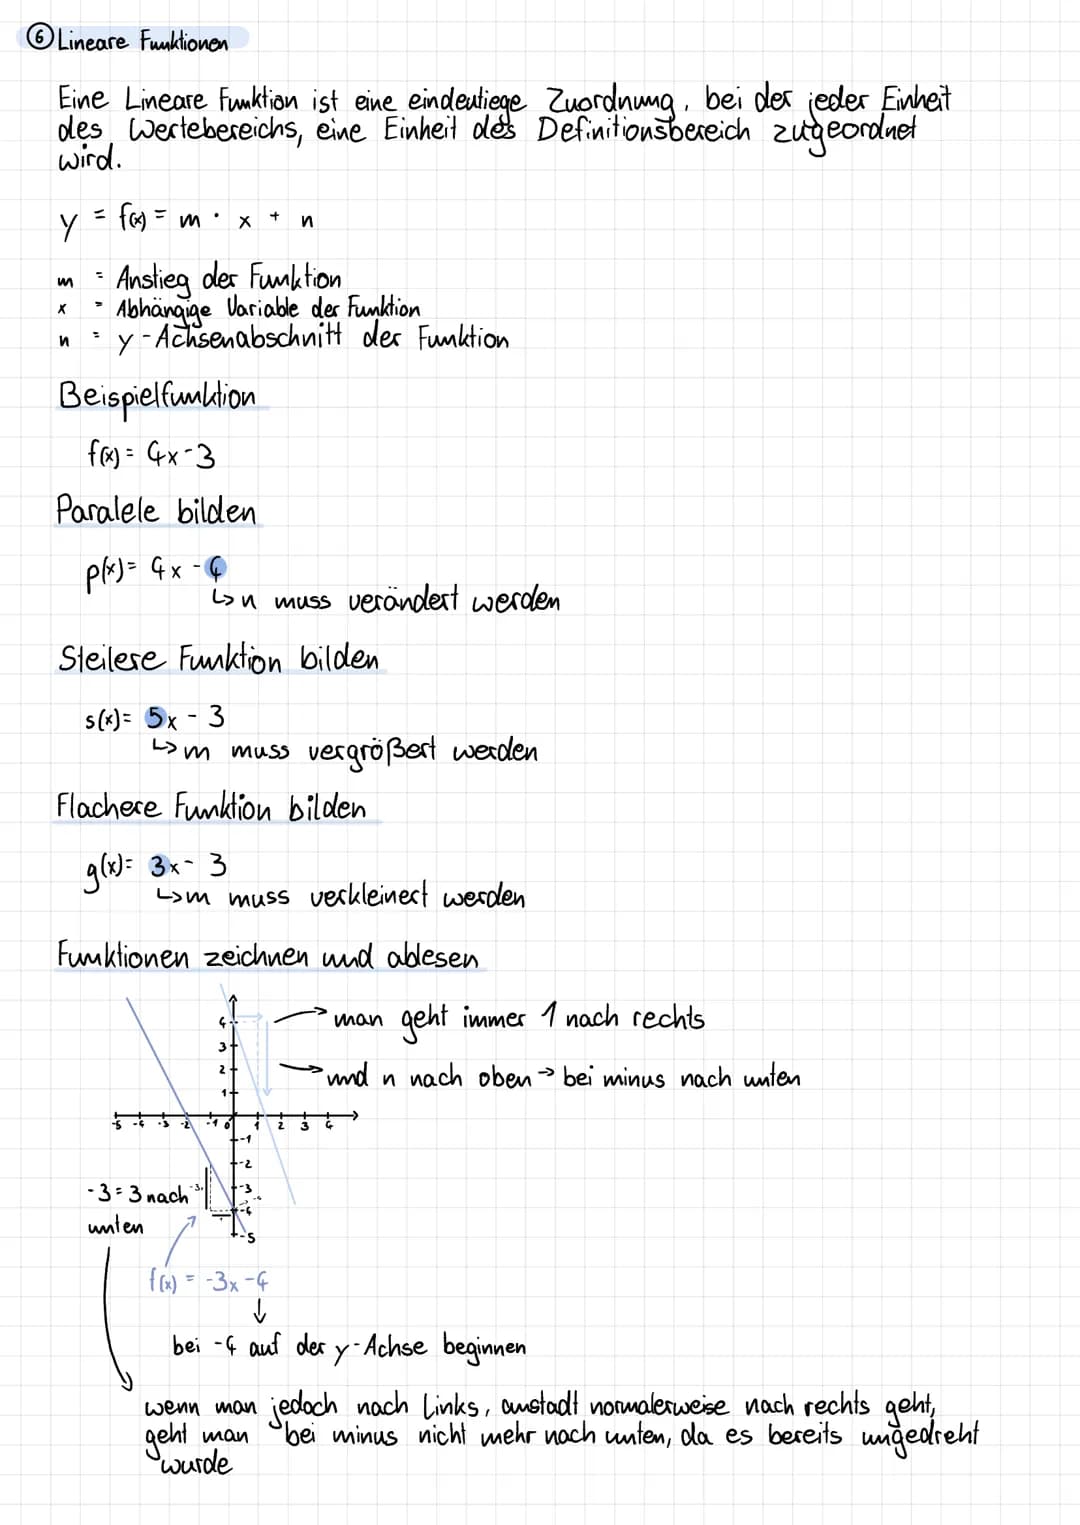 ⑥ Lineare Funktionen
Eine Lineare Funktion ist eine eindeutiege Zuordnung, bei der jeder Einheit
des Wertebereichs, eine Einheit des Definitionsbereich zugeordnet
wird.
y = f(x) = m · x + n
m = Anstieg der Funktion
x = Abhängige Variable der Funktion
n = y-Achsenabschnitt der Funktion
Beispielfunktion
f(x) = 4x-3
Paralele bilden
p(x) = 4x - 4
↳ n muss verändert werden
Steilere Funktion bilden
s(x) = 5x - 3
↳ m muss vergrößert werden
Flachere Funktion bilden
g(x) = 3x - 3
↳ m muss verkleinert werden
Funktionen zeichnen und ablesen
4
→ man geht immer 1 nach rechts
3
2
→ und n nach oben → bei minus nach unten
1
-5 -4 -3 -2 -1 0 1 2 3 4
-1
-2
-3 = 3 nach -3 -3
-4
unten
-5
f(x) = -3x -4
↓
bei -4 auf der y-Achse beginnen
wenn man jedoch nach Links, anstadt normalerweise nach rechts geht,
geht man bei minus nicht mehr nach unten, da es bereits umgedreht
wurde